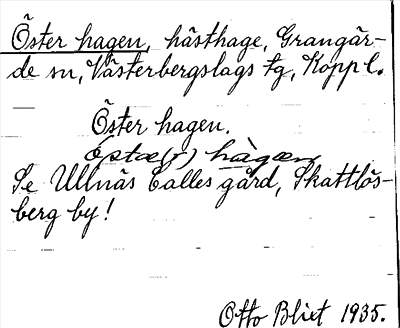 Öster hagen, hästhage, Grangär-
de sn, Västerbergslags tg, Koppl.
Öster hagen.
östæ(r) hàgæn
Se Ullnäs Calles gård, Skattlös-
berg by!
Otto Blixt 1935.